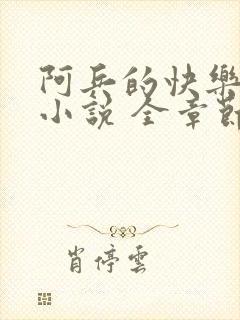 阿兵的快樂
小說 全章節
肖停雲